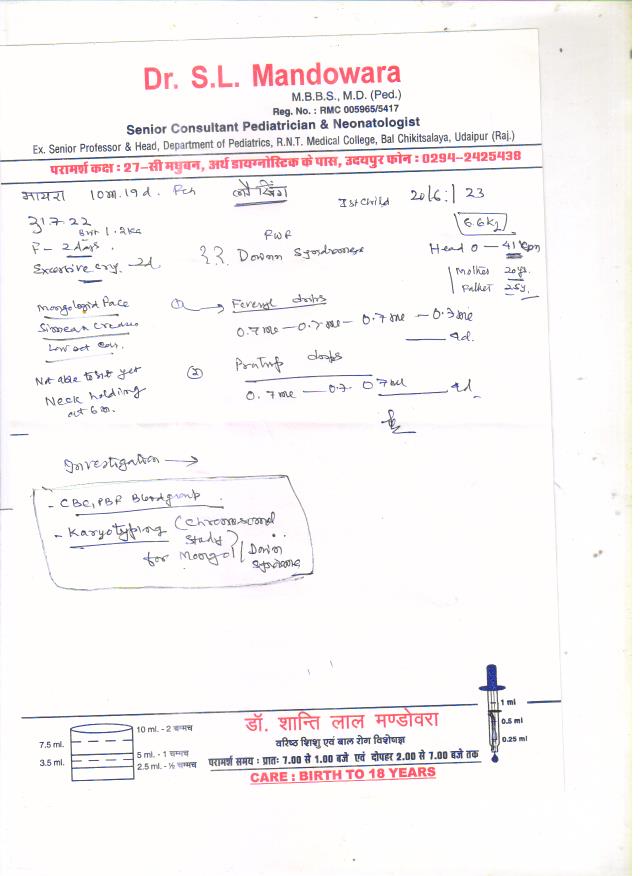 Dr. S.L. Mandowara
M.B.B.S., M.D. (Ped.)
Reg. No. : RMC 005965/5417
Senior Consultant Pediatrician & Neonatologist
Ex. Senior Professor & Head, Department of Pediatrics, R.N.T. Medical College, Bal Chikitsalaya, Udaipur (Raj.)
परामर्श कक्ष : 27-सी मधुबन, अर्थ डायग्नोस्टिक के पास, उदयपुर फोन : 0294-2425438
मायरा 10m.19d. Fch Ist child 20/6/23
31.7.22
6.6kg
F - 2 days.
Down Syndrome
Head 0 - 41 cm
Excessive cry - 2d
Mother 20 ys.
Father 25 y.
Mongoloid Face
①
drops
Simean Crease
0.7 ml - 0.7 ml - 0.7 ml - 0.3 ml
Low set Ear.
Not able to sit yet
②
drops
Neck holding
at 6 m.
0.7 ml - 0.7 0.7 ml
Investigation →
- CBC, PBF Bloodgroup
- Karyotyping (Chromosomal
Study)
for Mongol / Down
Syndrome
10 ml. - 2 चम्मच
7.5 ml.
5 ml. - 1 चम्मच
3.5 ml.
2.5 ml. - ½ चम्मच
डॉ. शान्ति लाल मण्डोवरा
वरिष्ठ शिशु एवं बाल रोग विशेषज्ञ
परामर्श समय : प्रातः 7.00 से 1.00 बजे एवं दोपहर 2.00 से 7.00 बजे तक
CARE : BIRTH TO 18 YEARS
1 ml
0.5 ml
0.25 ml